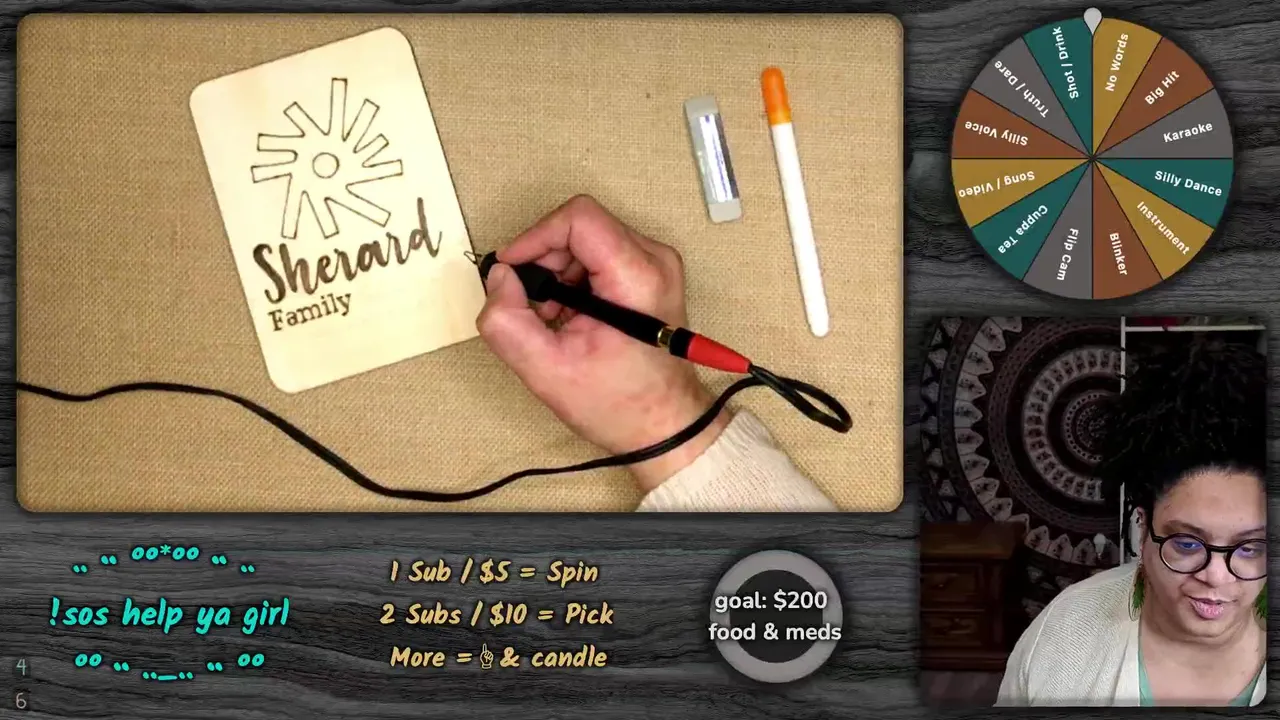 Sherard
Family
No Words
Big Hit
Karaoke
Silly Dance
Instrument
Blinker
Flip Cam
Cuppa Tea
Song / Video
Silly Voice
Truth / Dare
Shot / Drink
!sos help ya girl
1 Sub / $5 = Spin
2 Subs / $10 = Pick
More = ☝ & candle
goal: $200
food & meds
4
6